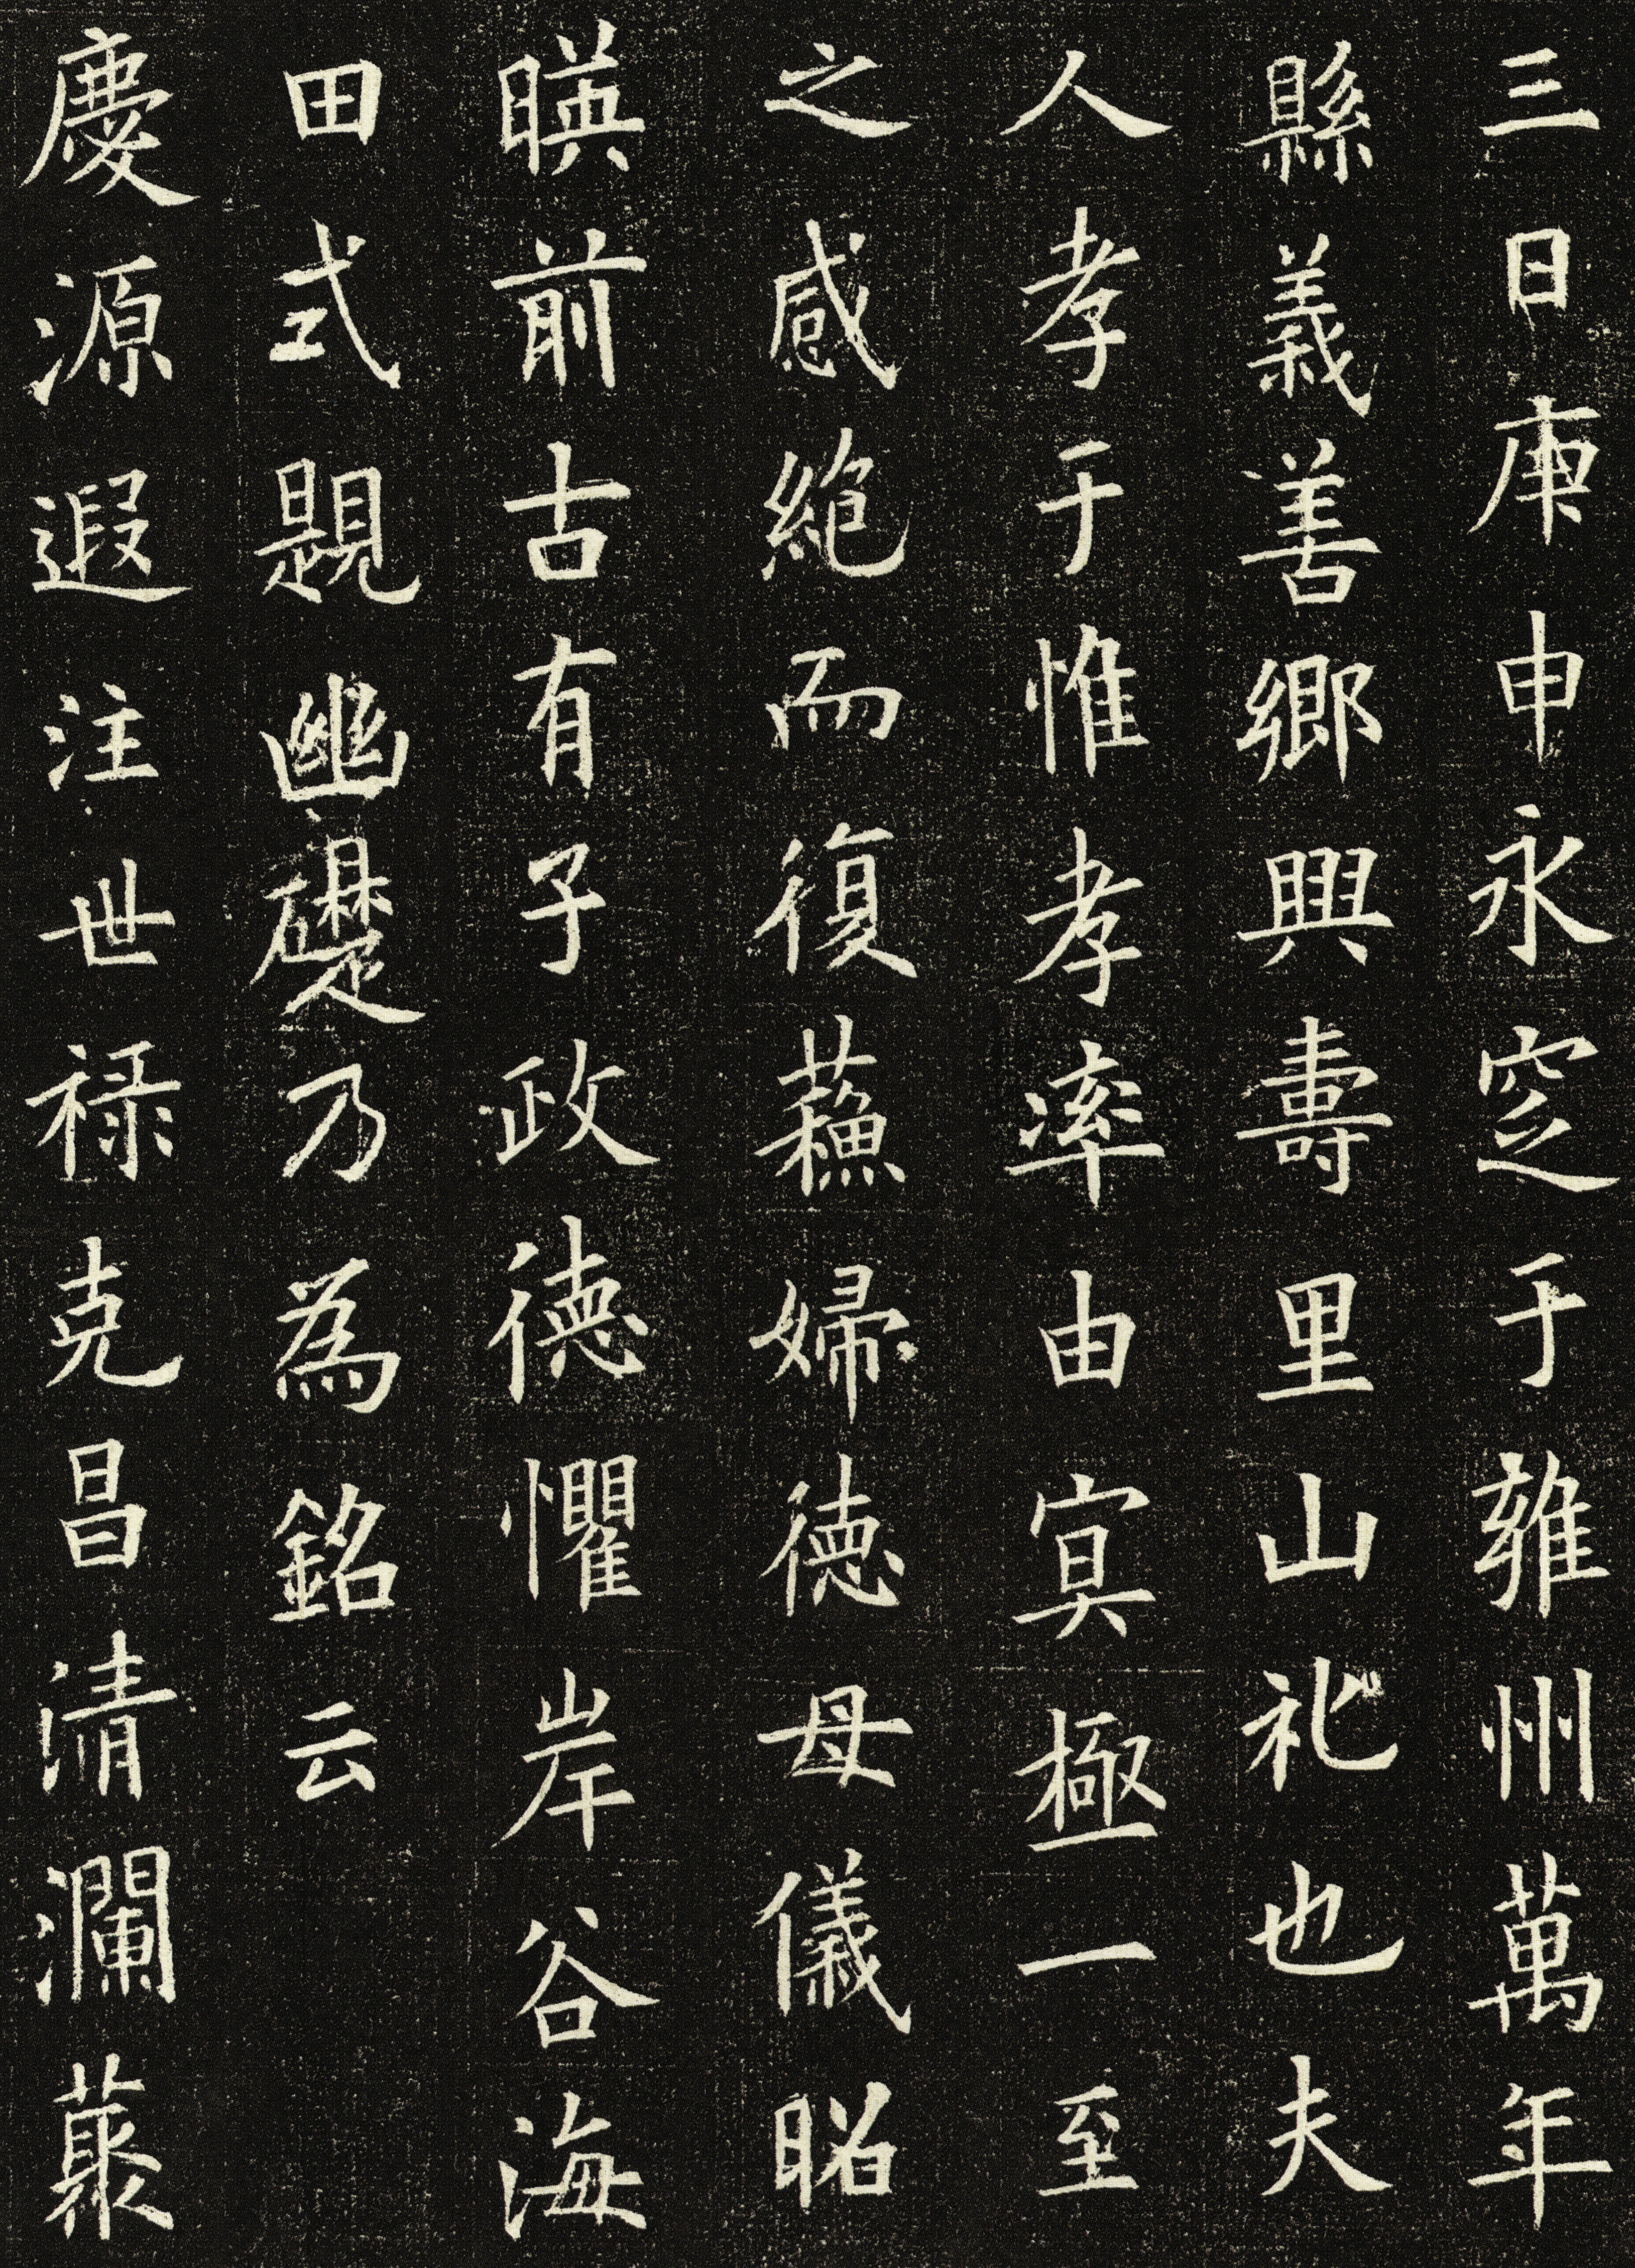 三日庚申永窆于雍州萬年
縣義善鄉興壽里山礼也夫
人孝于惟孝率由㝠極一至
之感絶而復蘓婦德母儀昭
暎前古有子政德懼岸谷海
田式題幽礎乃為銘云
慶源遐注世禄克昌清瀾藂